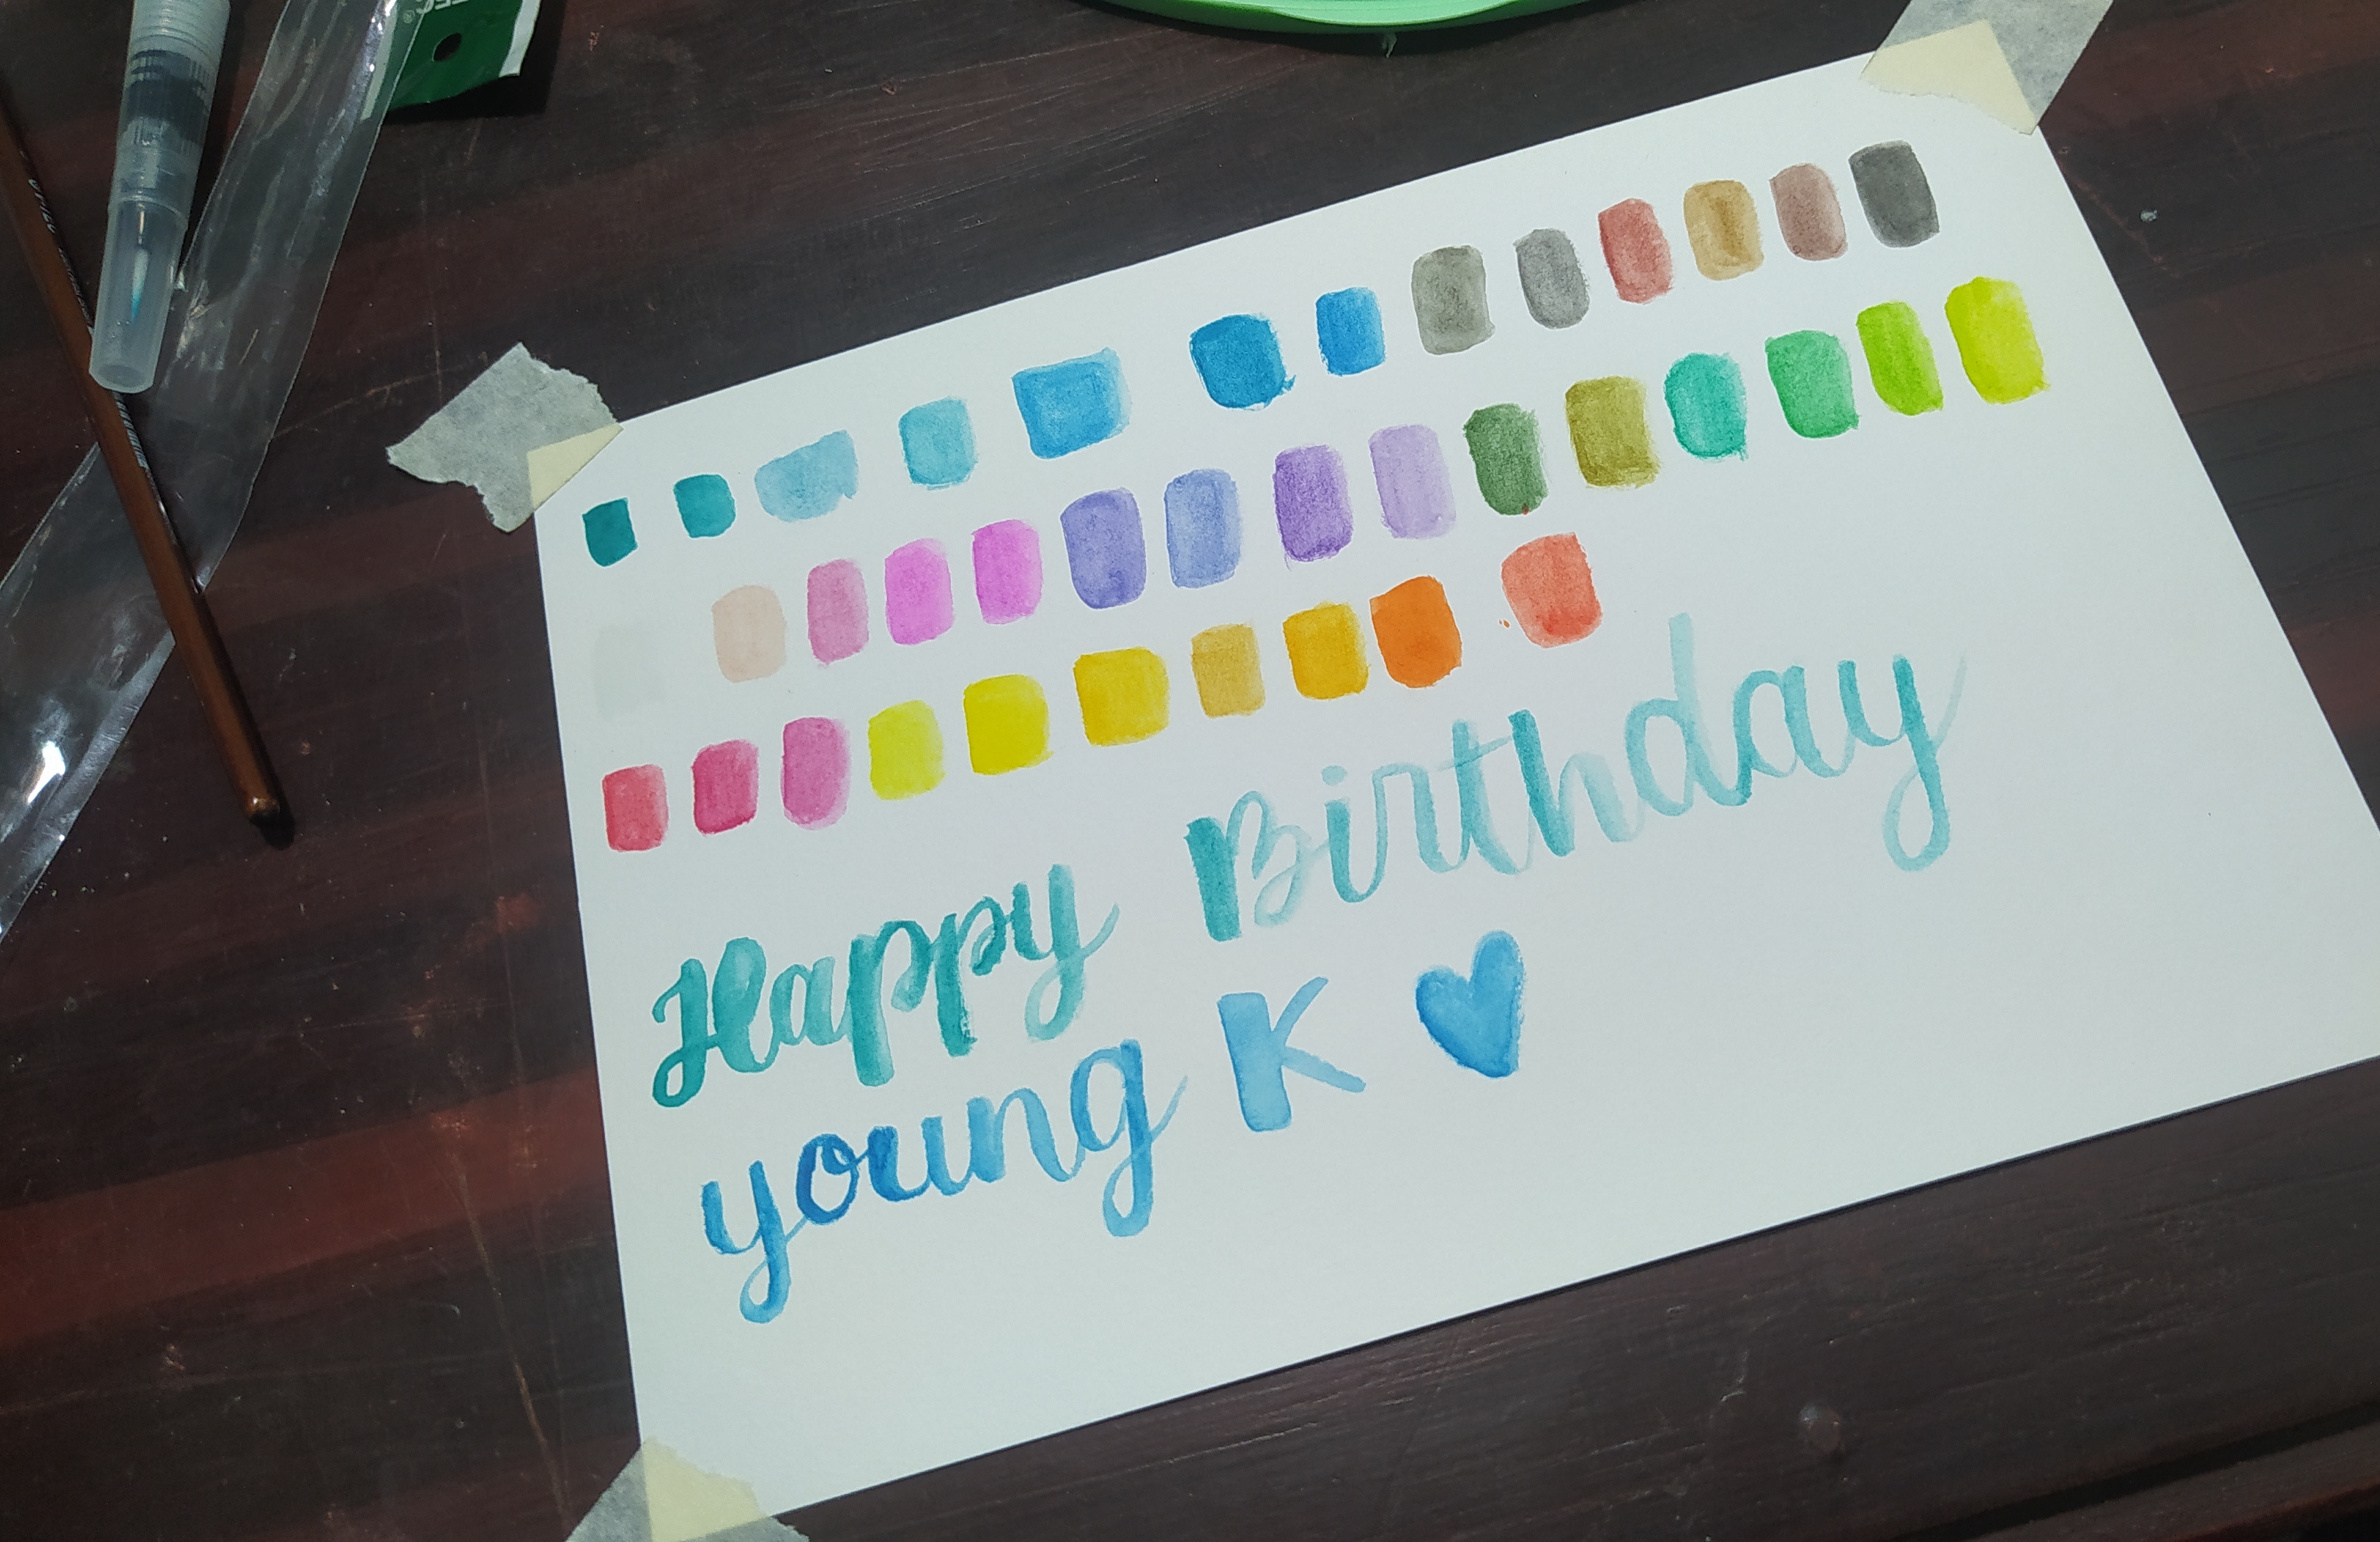 Happy Birthday
young K